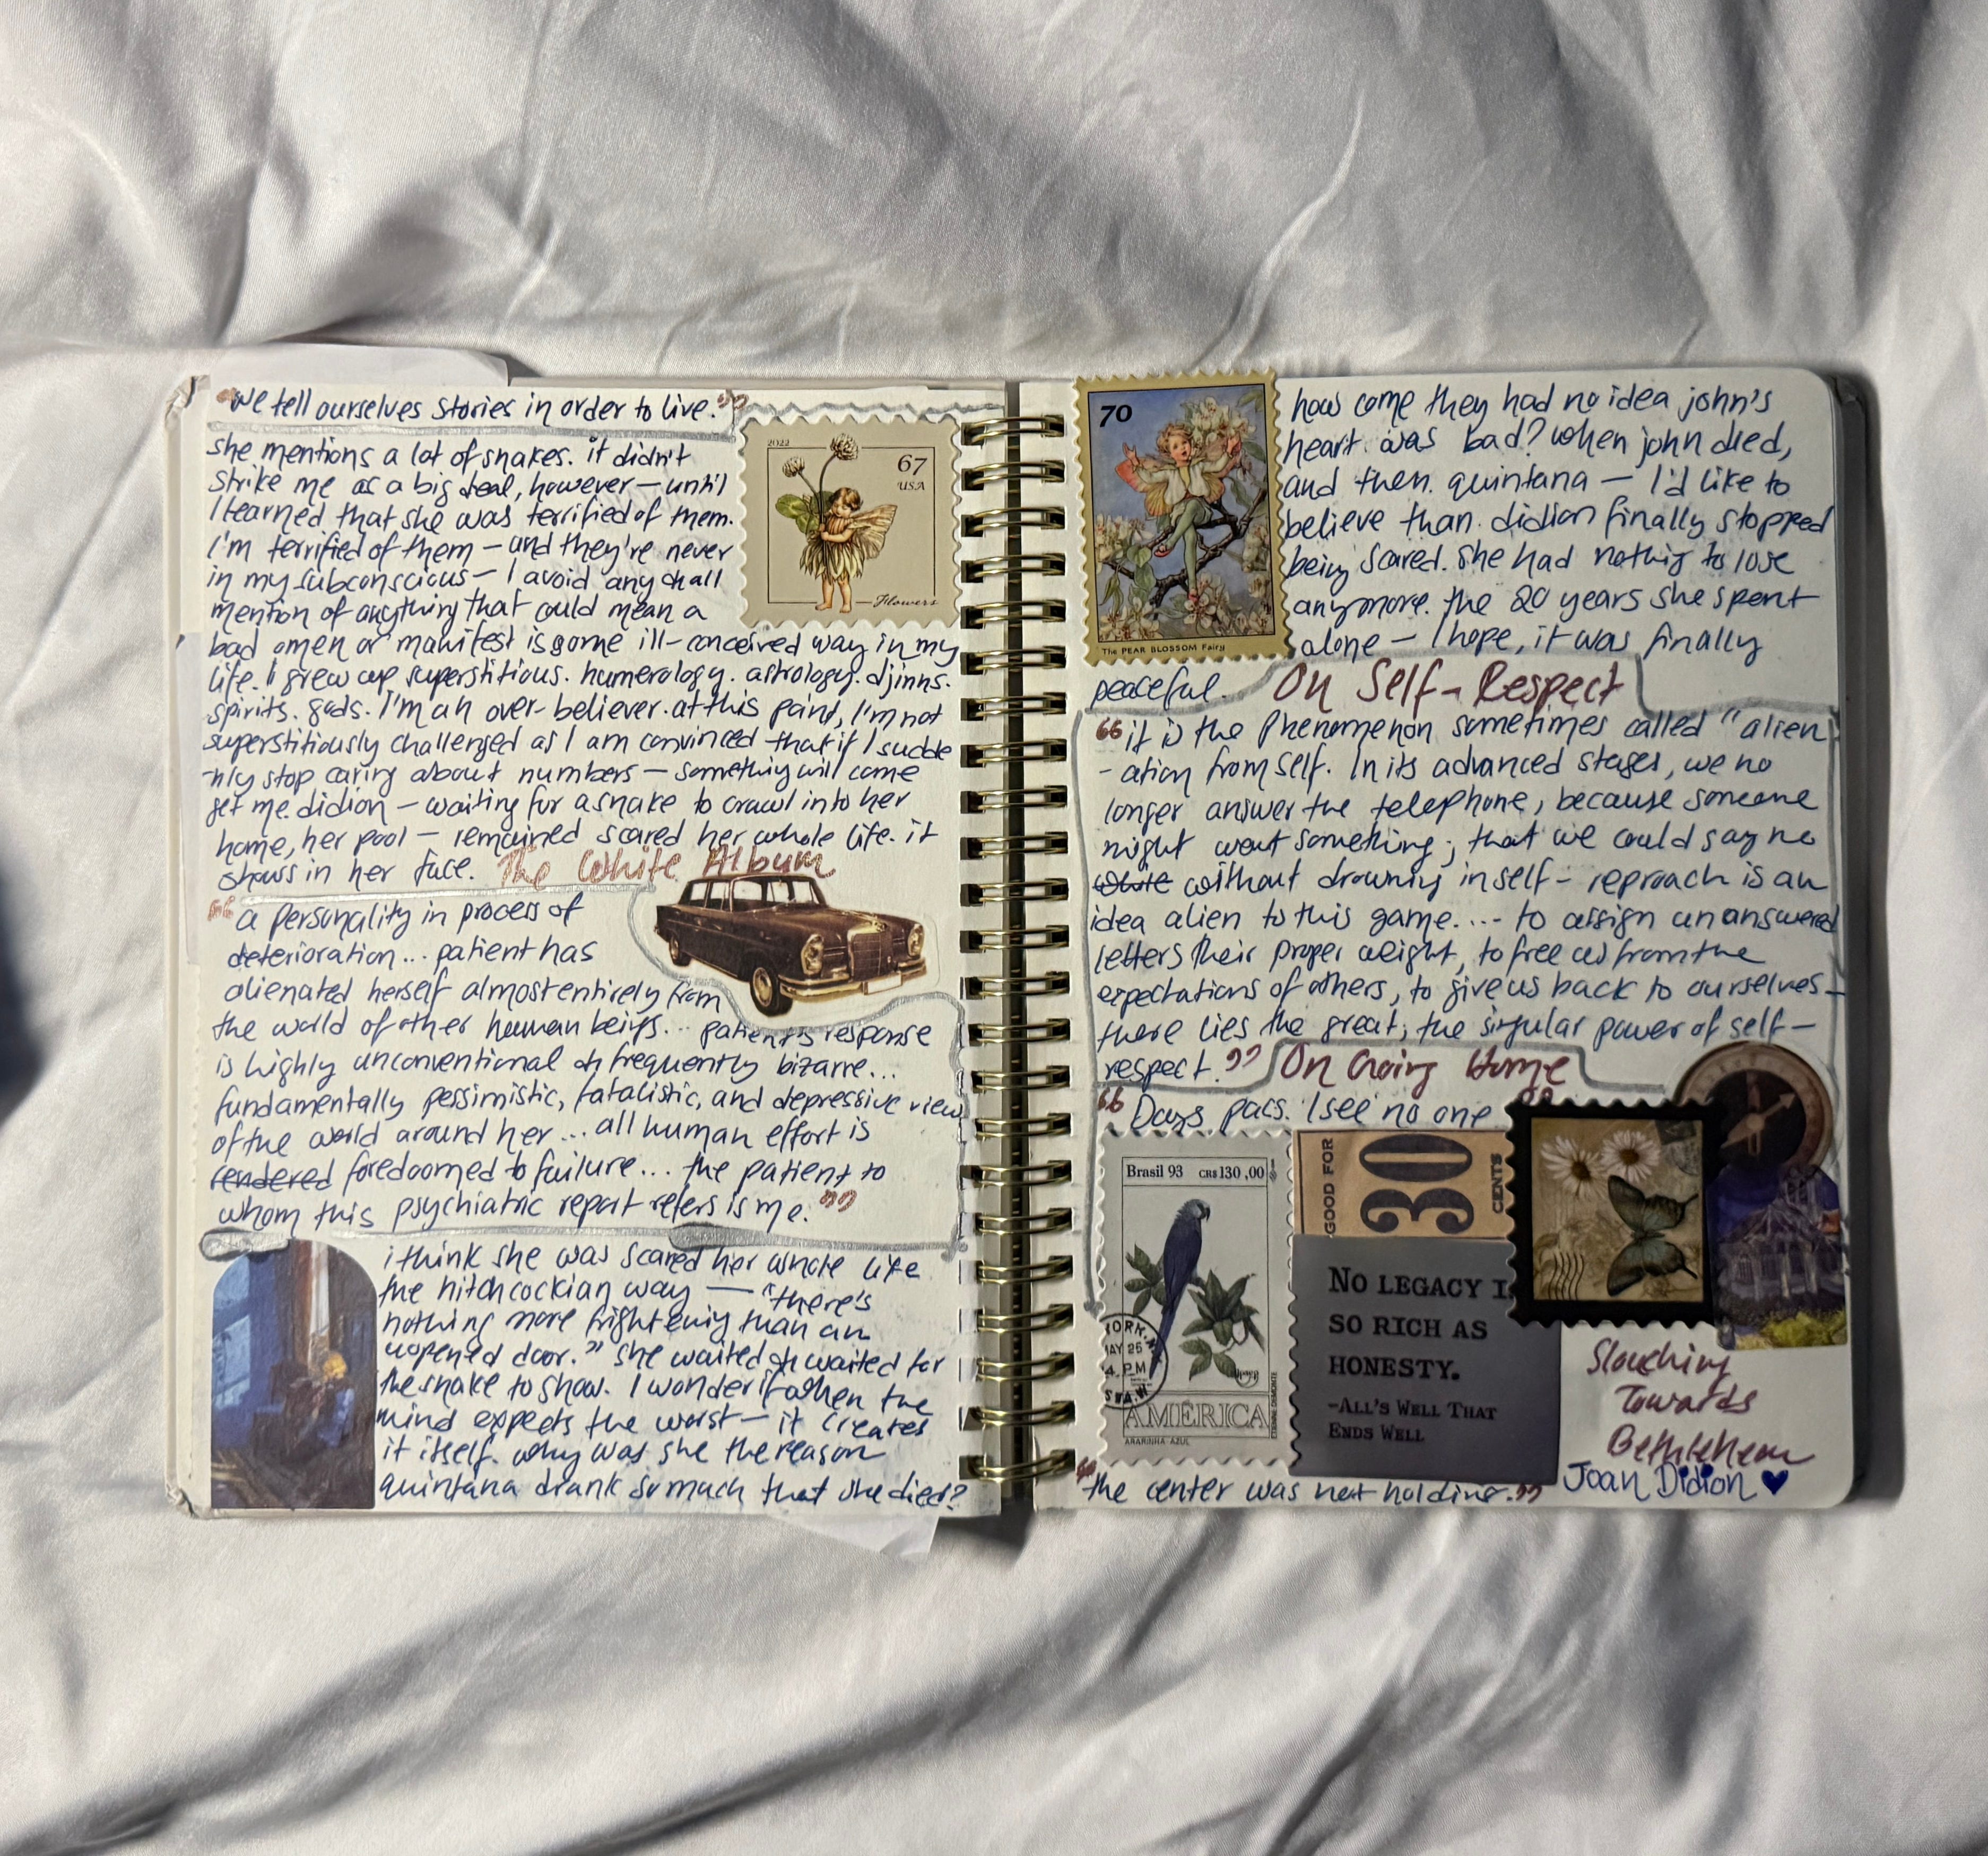 "We tell ourselves stories in order to live."
she mentions a lot of snakes. it didn't
strike me as a big deal, however — until
I learned that she was terrified of them.
I'm terrified of them — and they're never
in my subconscious — I avoid any & all
mention of anything that could mean a
bad omen or manifest is some ill-conceived way in my
life. I grew up superstitious. numerology. astrology. djinns.
spirits. gods. I'm an over-believer. at this point, I'm not
superstitiously challenged as I am convinced that if I sudde
-nly stop caring about numbers — something will come
get me. didion — waiting for a snake to crawl into her
home, her pool — remained scared her whole life. it
shows in her face. The White Album
"a personality in process of
deterioration... patient has
alienated herself almost entirely from
the world of other human beings... patient's response
is highly unconventional & frequently bizarre...
fundamentally pessimistic, fatalistic, and depressive view
of the world around her... all human effort is
rendered foredoomed to failure... the patient to
whom this psychiatric report refers is me."
i think she was scared her whole life
the hitchcockian way — "there's
nothing more frightening than an
uopened door." she waited & waited for
the snake to show. I wonder if when the
mind expects the worst — it creates
it itself. why was she the reason
quintana drank so much that she died?
2022
67
USA
Flowers
70
The PEAR BLOSSOM Fairy
how come they had no idea john's
heart was bad? when john died,
and then quintana — I'd like to
believe than didion finally stopped
being scared. She had nothig to lose
anymore. the 20 years she spent
alone — I hope, it was finally
peaceful. On Self-Respect
"it is the phenomenon sometimes called "alien
-ation from self. In its advanced stages, we no
longer answer the telephone, because someone
might want something; that we could say no
without drowning in self-reproach is an
idea alien to this game.... to assign unanswered
letters their proper weight, to free us from the
expectations of others, to give us back to ourselves —
there lies the great, the singular power of self-
respect." On Going Home
"Days pass. I see no one."
Brasil 93 CR$ 130,00
YORK, N
MAY 25
4 PM
STA.
AMÉRICA
ARARINHA-AZUL
GOOD FOR
30
CENTS
NO LEGACY IS
SO RICH AS
HONESTY.
-ALL'S WELL THAT
ENDS WELL
Slouching
Towards
Bethlehem
Joan Didion
"the center was not holding."